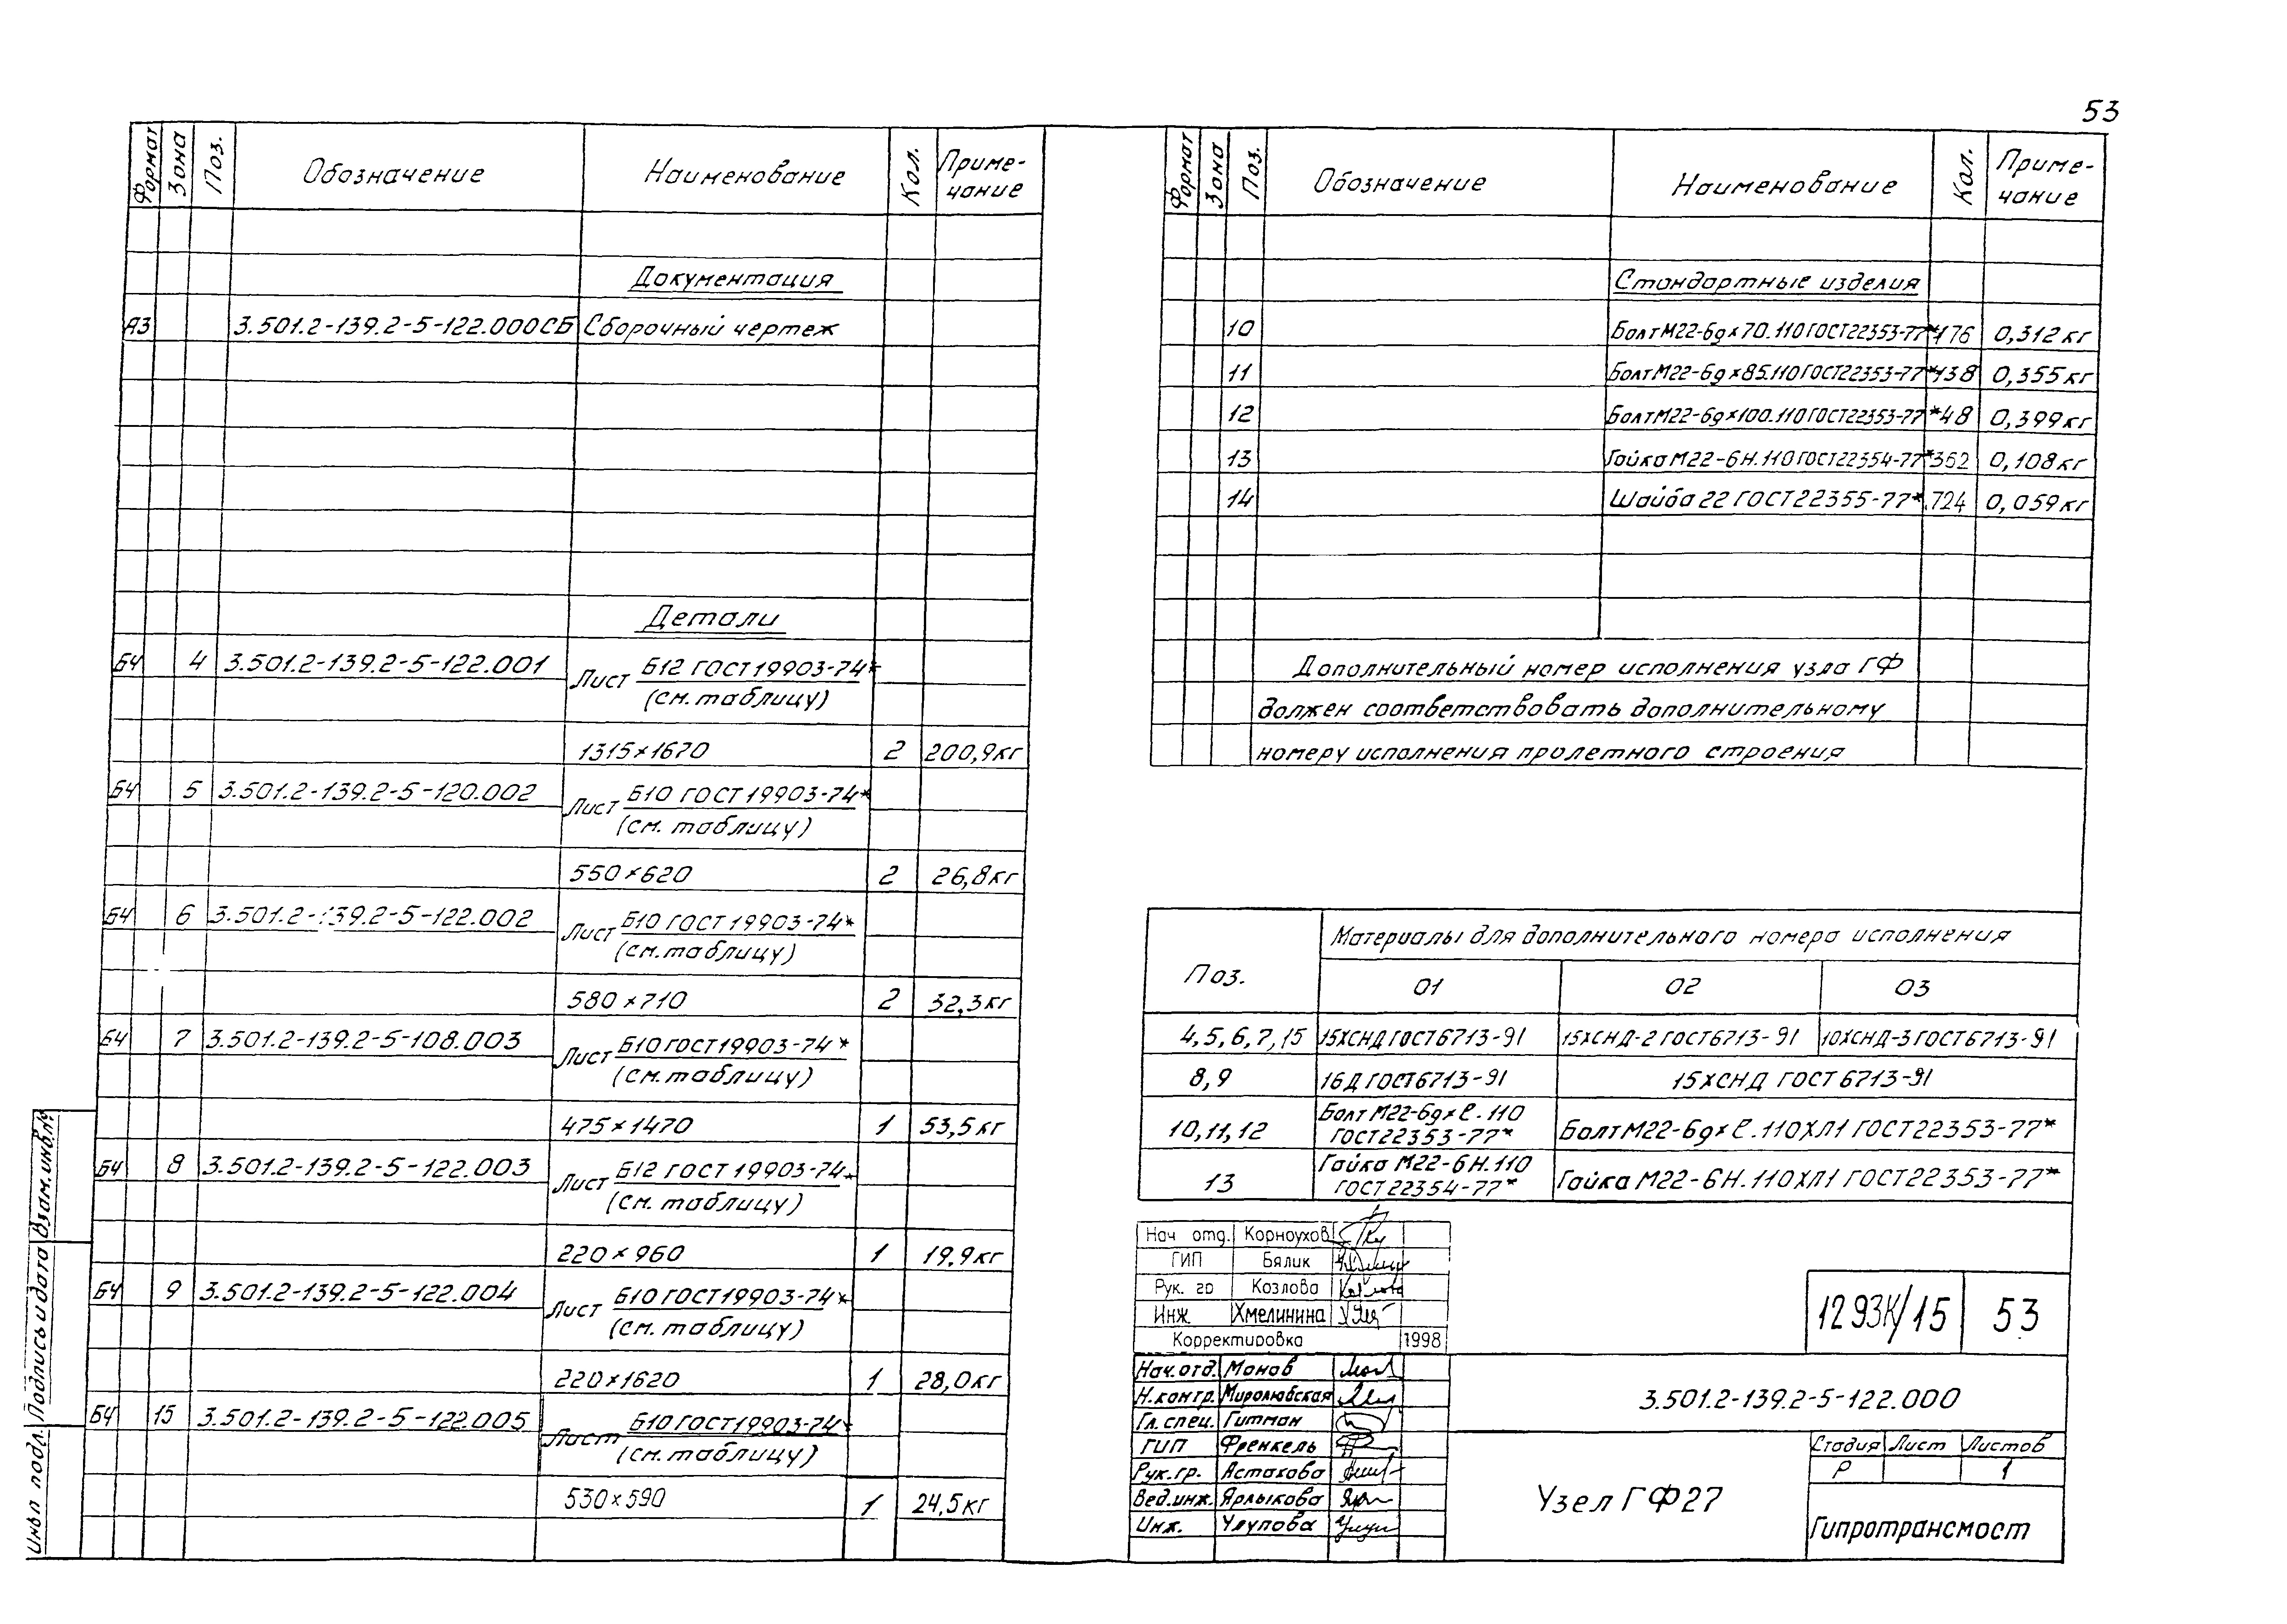 53
Формат Зона Поз. Обозначение Наименование Кол. Приме-
чание
Документация
А3 3.501.2-139.2-5-122.000СБ Сборочный чертеж
Детали
БЧ 4 3.501.2-139.2-5-122.001 Лист Б12 ГОСТ 19903-74*
(см. таблицу)
1315×1670 2 200,9кг
БЧ 5 3.501.2-139.2-5-120.002 Лист Б10 ГОСТ 19903-74*
(см. таблицу)
550×620 2 26,8кг
БЧ 6 3.501.2-139.2-5-122.002 Лист Б10 ГОСТ 19903-74*
(см. таблицу)
580×710 2 32,3кг
БЧ 7 3.501.2-139.2-5-108.003 Лист Б10 ГОСТ 19903-74*
(см. таблицу)
475×1470 1 53,5кг
БЧ 8 3.501.2-139.2-5-122.003 Лист Б12 ГОСТ 19903-74*
(см. таблицу)
220×960 1 19,9кг
БЧ 9 3.501.2-139.2-5-122.004 Лист Б10 ГОСТ 19903-74*
(см. таблицу)
220×1620 1 28,0кг
БЧ 15 3.501.2-139.2-5-122.005 Лист Б10 ГОСТ 19903-74*
(см. таблицу)
530×590 1 24,5кг
Инв.№ подл. Подпись и дата Взам.инв.№
Формат Зона Поз. Обозначение Наименование Кол. Приме-
чание
Стандартные изделия
10 Болт М22-6g×70.110 ГОСТ22353-77* 176 0,312кг
11 Болт М22-6g×85.110 ГОСТ22353-77* 138 0,355кг
12 Болт М22-6g×100.110 ГОСТ22353-77* 48 0,399кг
13 Гайка М22-6Н.110 ГОСТ22354-77* 362 0,108кг
14 Шайба 22 ГОСТ 22355-77* 724 0,059кг
Дополнительный номер исполнения узла ГФ
должен соответствовать дополнительному
номеру исполнения пролетного строения
Поз. Материалы для дополнительного номера исполнения
01 02 03
4,5,6,7,15 15ХСНД ГОСТ6713-91 15ХСНД-2 ГОСТ6713-91 10ХСНД-3 ГОСТ6713-91
8,9 16Д ГОСТ6713-91 15ХСНД ГОСТ 6713-91
10,11,12 Болт М22-6g×ℓ.110
ГОСТ22353-77* Болт М22-6g×ℓ.110ХЛ1 ГОСТ22353-77*
13 Гайка М22-6Н.110
ГОСТ 22354-77* Гайка М22-6Н.110ХЛ1 ГОСТ22353-77*
Нач отд. Корноухов
ГИП Бялик
Рук. гр Козлова
Инж Хмелинина
Корректировка 1998
1293К/15 53
Нач.отд. Монов
Н.контр. Миролюбская
Гл.спец. Гитман
ГИП Френкель
Рук.гр. Астахова
Вед.инж. Ярлыкова
Инж. Улупова
3.501.2-139.2-5-122.000
Узел ГФ27
Стадия Лист Листов
Р 1
Гипротрансмост